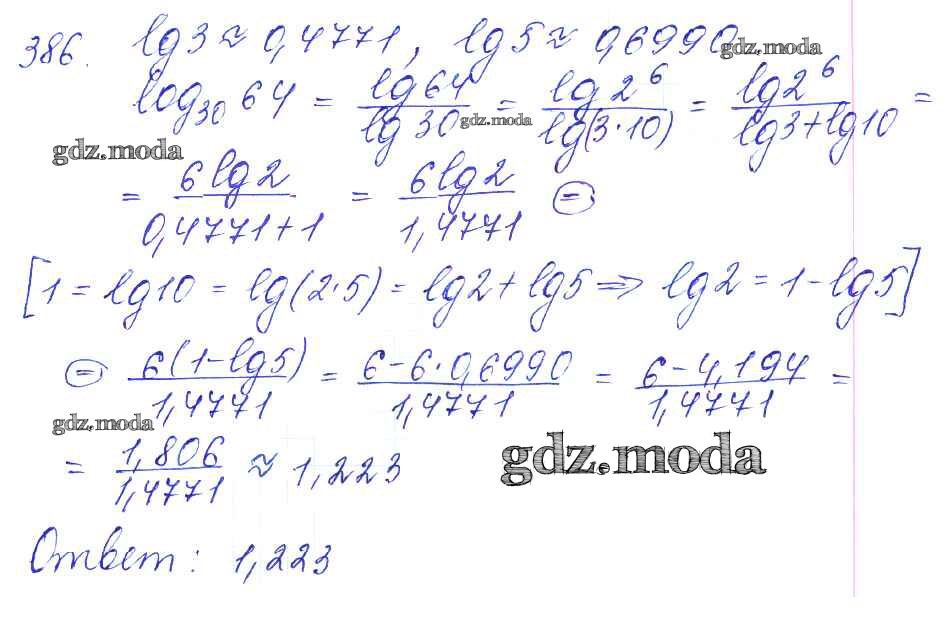 386. lg3 ≈ 0,4771, lg5 ≈ 0,6990
gdz.moda
log₃₀64 = lg64/lg30 = lg2⁶/lg(3·10) = lg2⁶/(lg3+lg10) =
gdz.moda
gdz.moda
= 6lg2/(0,4771+1) = 6lg2/1,4771 ⊜
[1 = lg10 = lg(2·5) = lg2 + lg5 => lg2 = 1 - lg5]
⊜ 6(1-lg5)/1,4771 = (6-6·0,6990)/1,4771 = (6-4,194)/1,4771 =
gdz.moda
= 1,806/1,4771 ≈ 1,223
gdz.moda
Ответ: 1,223